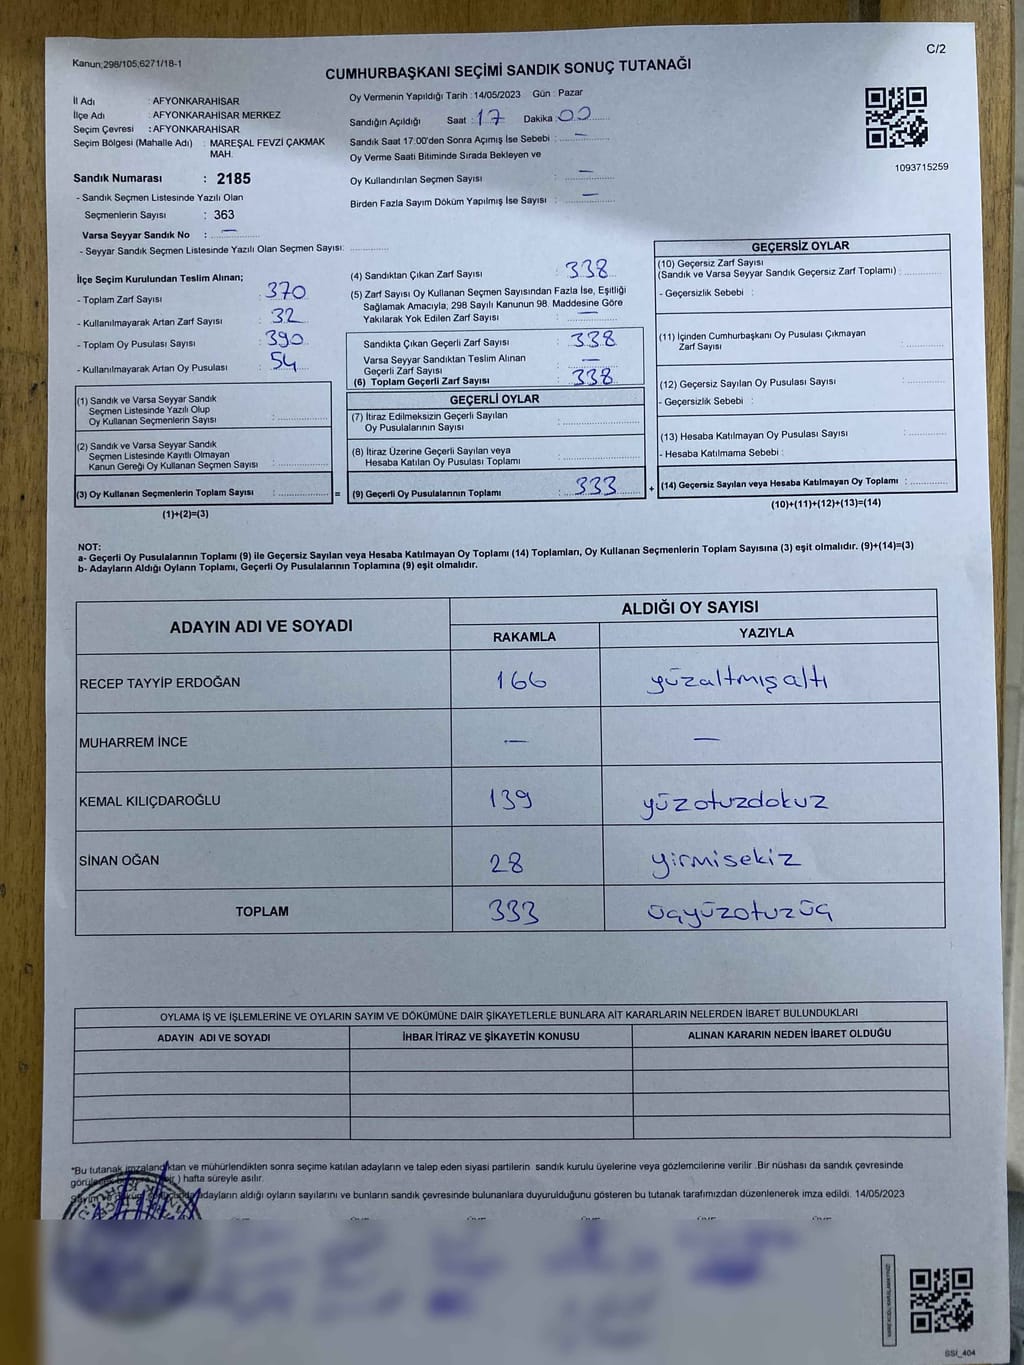 Kanun;298/105;6271/18-1
C/2
CUMHURBAŞKANI SEÇİMİ SANDIK SONUÇ TUTANAĞI
İl Adı : AFYONKARAHİSAR
İlçe Adı : AFYONKARAHİSAR MERKEZ
Seçim Çevresi : AFYONKARAHİSAR
Seçim Bölgesi (Mahalle Adı) : MAREŞAL FEVZİ ÇAKMAK
MAH.
Sandık Numarası : 2185
- Sandık Seçmen Listesinde Yazılı Olan
Seçmenlerin Sayısı : 363
Varsa Seyyar Sandık No : —
- Seyyar Sandık Seçmen Listesinde Yazılı Olan Seçmen Sayısı: ............
Oy Vermenin Yapıldığı Tarih : 14/05/2023 Gün : Pazar
Sandığın Açıldığı Saat : 17 Dakika : 00
Sandık Saat 17:00'den Sonra Açımış İse Sebebi : —
Oy Verme Saati Bitiminde Sırada Bekleyen ve
Oy Kullandırılan Seçmen Sayısı : —
Birden Fazla Sayım Döküm Yapılmış İse Sayısı : —
1093715259
İlçe Seçim Kurulundan Teslim Alınan;
- Toplam Zarf Sayısı : 370
- Kullanılmayarak Artan Zarf Sayısı : 32
- Toplam Oy Pusulası Sayısı : 390
- Kullanılmayarak Artan Oy Pusulası : 54
(1) Sandık ve Varsa Seyyar Sandık
Seçmen Listesinde Yazılı Olup
Oy Kullanan Seçmenlerin Sayısı : ............
(2) Sandık ve Varsa Seyyar Sandık
Seçmen Listesinde Kayıtlı Olmayan
Kanun Gereği Oy Kullanan Seçmen Sayısı : ............
(3) Oy Kullanan Seçmenlerin Toplam Sayısı : ............ =
(1)+(2)=(3)
(4) Sandıktan Çıkan Zarf Sayısı : 338
(5) Zarf Sayısı Oy Kullanan Seçmen Sayısından Fazla İse, Eşitliği
Sağlamak Amacıyla, 298 Sayılı Kanunun 98. Maddesine Göre
Yakılarak Yok Edilen Zarf Sayısı : —
Sandıkta Çıkan Geçerli Zarf Sayısı : 338
Varsa Seyyar Sandıktan Teslim Alınan
Geçerli Zarf Sayısı : —
(6) Toplam Geçerli Zarf Sayısı : 338
GEÇERLİ OYLAR
(7) İtiraz Edilmeksizin Geçerli Sayılan
Oy Pusulalarının Sayısı : ............
(8) İtiraz Üzerine Geçerli Sayılan veya
Hesaba Katılan Oy Pusulası Toplamı : ............
(9) Geçerli Oy Pusulalarının Toplamı : 333 +
GEÇERSİZ OYLAR
(10) Geçersiz Zarf Sayısı
(Sandık ve Varsa Seyyar Sandık Geçersiz Zarf Toplamı) : ............
- Geçersizlik Sebebi :
(11) İçinden Cumhurbaşkanı Oy Pusulası Çıkmayan
Zarf Sayısı : ............
(12) Geçersiz Sayılan Oy Pusulası Sayısı : ............
- Geçersizlik Sebebi :
(13) Hesaba Katılmayan Oy Pusulası Sayısı : ............
- Hesaba Katılmama Sebebi :
(14) Geçersiz Sayılan veya Hesaba Katılmayan Oy Toplamı : ............
(10)+(11)+(12)+(13)=(14)
NOT:
a- Geçerli Oy Pusulalarının Toplamı (9) ile Geçersiz Sayılan veya Hesaba Katılmayan Oy Toplamı (14) Toplamları, Oy Kullanan Seçmenlerin Toplam Sayısına (3) eşit olmalıdır. (9)+(14)=(3)
b- Adayların Aldığı Oyların Toplamı, Geçerli Oy Pusulalarının Toplamına (9) eşit olmalıdır.
ADAYIN ADI VE SOYADI
ALDIĞI OY SAYISI
RAKAMLA YAZIYLA
RECEP TAYYİP ERDOĞAN 166 yüzaltmışaltı
MUHARREM İNCE — —
KEMAL KILIÇDAROĞLU 139 yüzotuzdokuz
SİNAN OĞAN 28 yirmisekiz
TOPLAM 333 üçyüzotuzüç
OYLAMA İŞ VE İŞLEMLERİNE VE OYLARIN SAYIM VE DÖKÜMÜNE DAİR ŞİKAYETLERLE BUNLARA AİT KARARLARIN NELERDEN İBARET BULUNDUKLARI
ADAYIN ADI VE SOYADI İHBAR İTİRAZ VE ŞİKAYETİN KONUSU ALINAN KARARIN NEDEN İBARET OLDUĞU
*Bu tutanak imzalandıktan ve mühürlendikten sonra seçime katılan adayların ve talep eden siyasi partilerin sandık kurulu üyelerine veya gözlemcilerine verilir .Bir nüshası da sandık çevresinde
) hafta süreyle asılır.
adayların aldığı oyların sayılarını ve bunların sandık çevresinde bulunanlara duyurulduğunu gösteren bu tutanak tarafımızdan düzenlenerek imza edildi. 14/05/2023
SSI_404